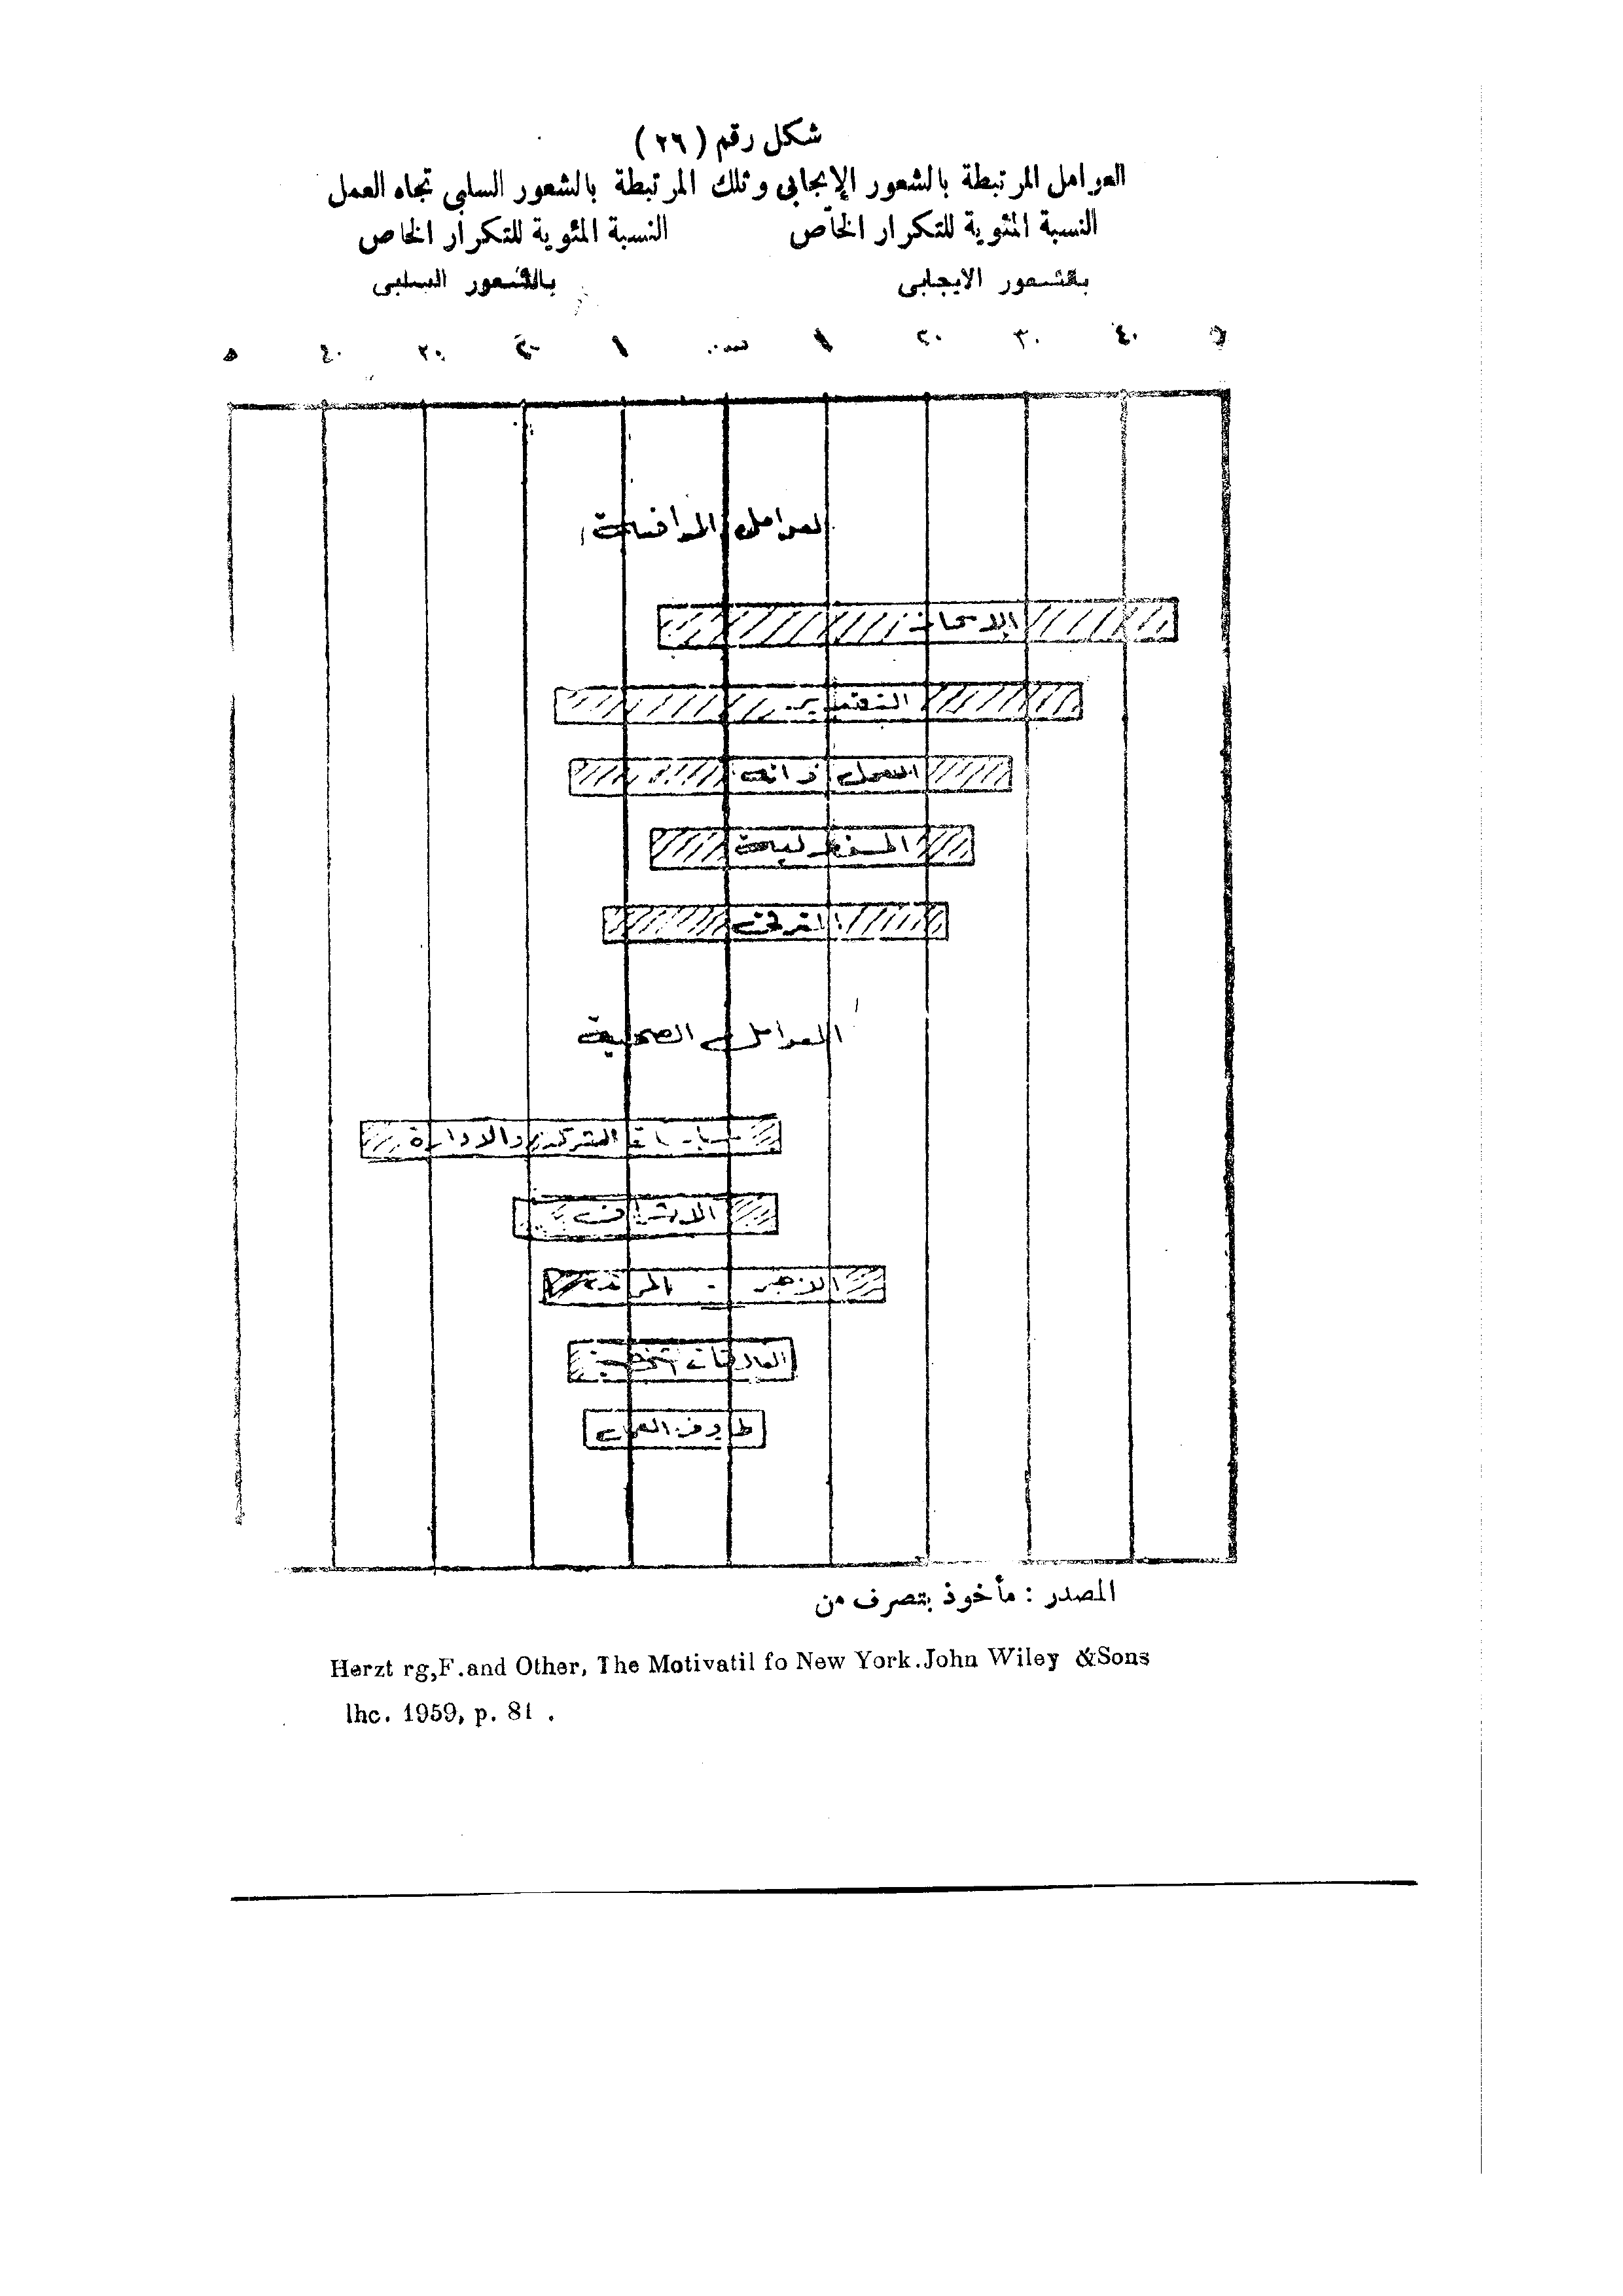 شكل رقم (٢٦)
العوامل المرتبطة بالشعور الإيجابي وتلك المرتبطة بالشعور السلبي تجاه العمل
النسبة المئوية للتكرار الخاص النسبة المئوية للتكرار الخاص
بالشعور الايجابى بالشعور السلبى
٤٠ ٣٠ ٢٠ ١ ١ ٢٠ ٣٠ ٤٠
العوامل الدافعة
التقدير
العمل ذاته
المسئولية
الترقى
العوامل الصحية
سياسات الشركة والادارة
الاشراف
الاجر - المرتب
العلاقات الشخصية
ظروف العمل
المصدر : مأخوذ بتصرف من
Herzt rg,F.and Other, The Motivatil fo New York.John Wiley &Sons
lhc. 1959, p. 81 .